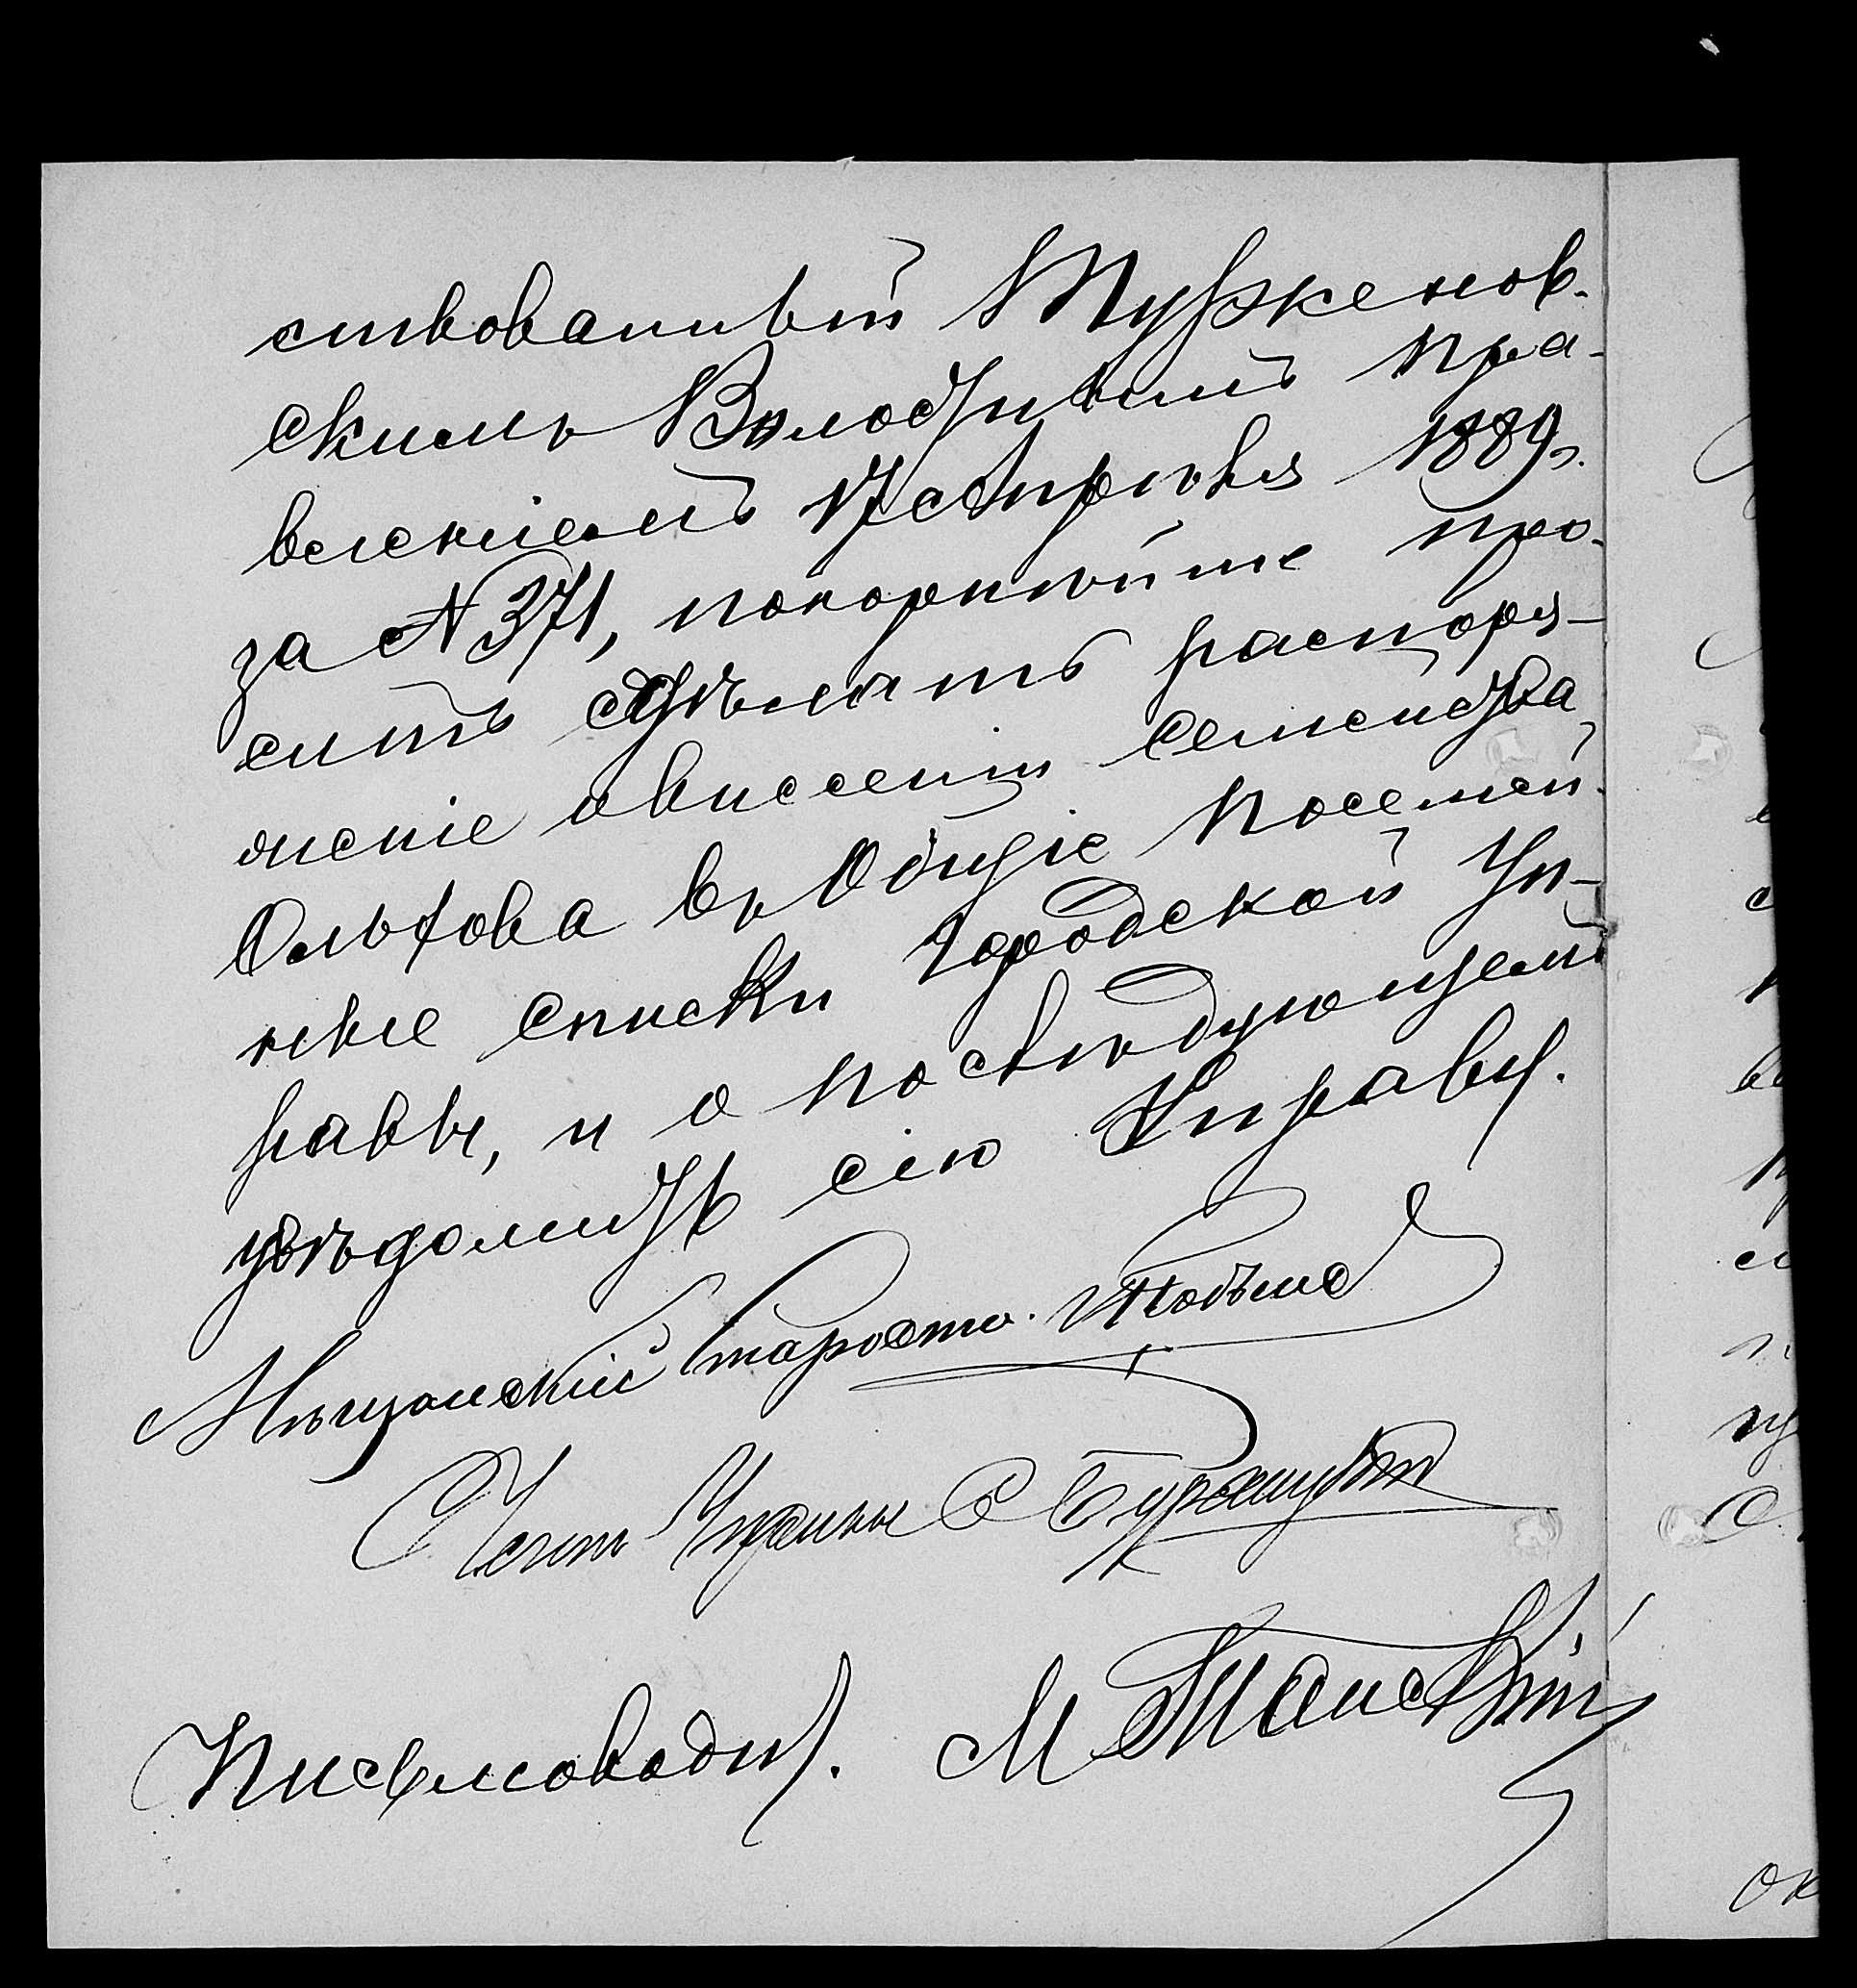 ствованный Турженов-
скимъ Волостнымъ пра-
вленіемъ 17 Апрѣля 1889 г.
за № 371, покорнѣйше про-
ситъ сдѣлать распоря-
женіе о внесеніи семейства
Ольфова въ Общіе посемей-
ные списки городской Уп-
равы, и о послѣдующемъ
увѣдомить сію Управу.
Мѣщанскій Староста
Член Управы С
Письмоводит. М